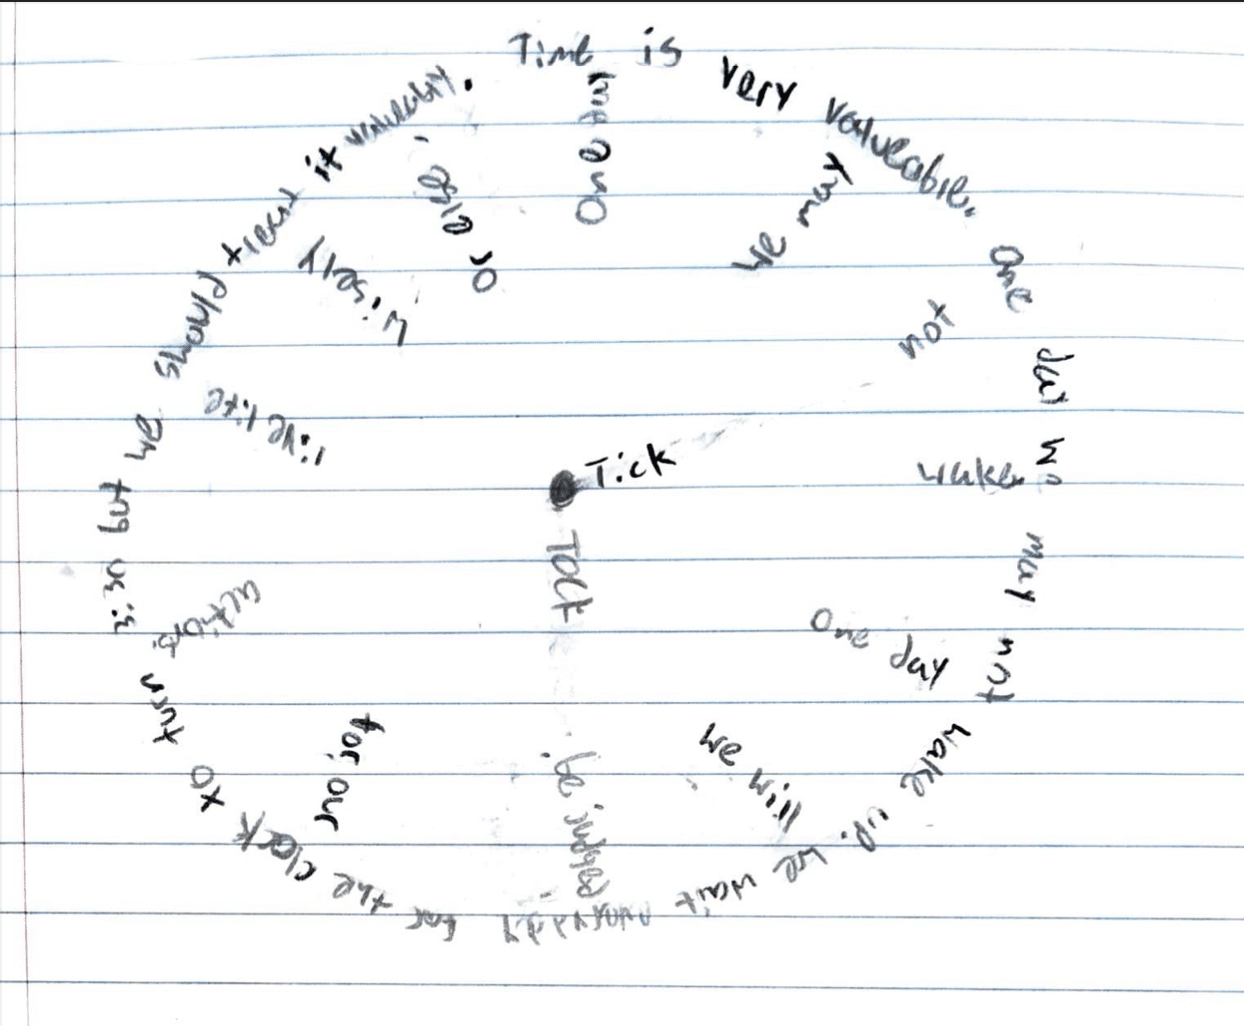 Time is very valueable. One day we may not wake up. we wait everyday for the clock to turn 3:30 but we should treat it valueably.
One day
we may
not
wake.
One day
we will
be judged
for our
actions
live life
wisely
or else.
Tick
Tock